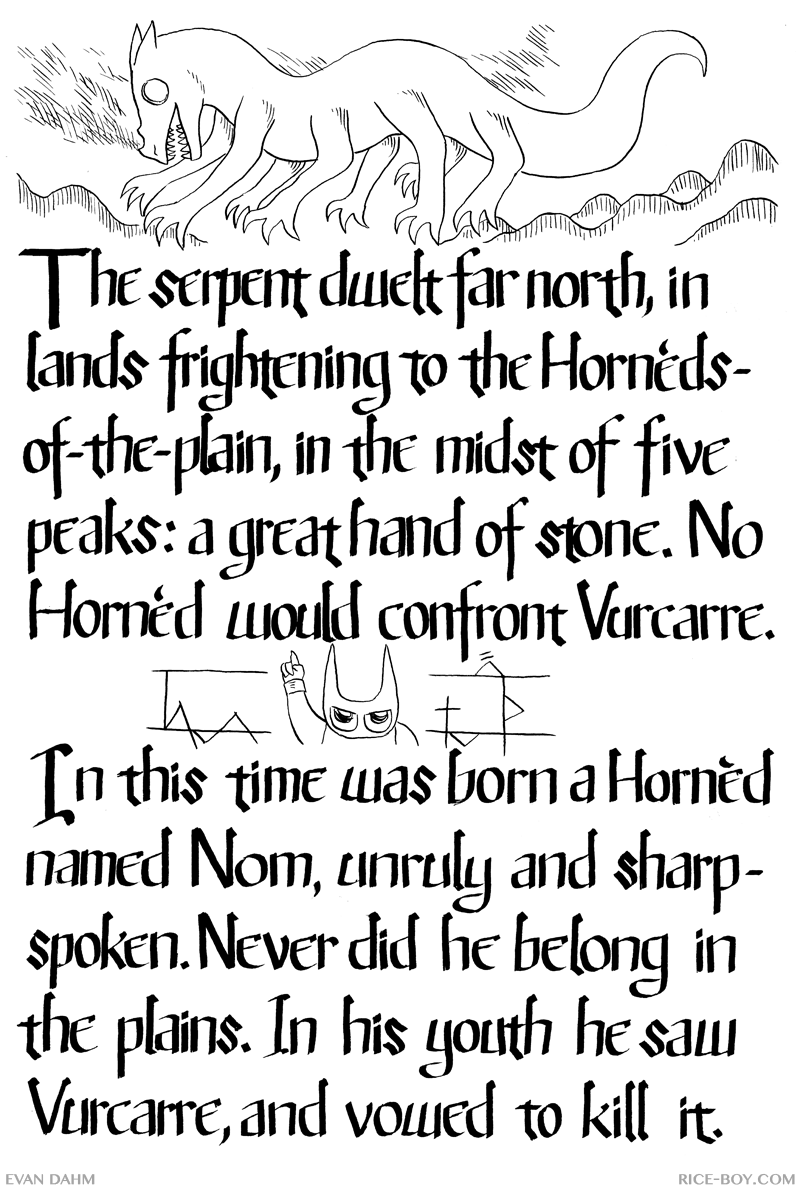 The serpent dwelt far north, in
lands frightening to the Hornèds-
of-the-plain, in the midst of five
peaks: a great hand of stone. No
Hornèd would confront Vurcarre.
In this time was born a Hornèd
named Nom, unruly and sharp-
spoken. Never did he belong in
the plains. In his youth he saw
Vurcarre, and vowed to kill it.
EVAN DAHM
RICE-BOY.COM